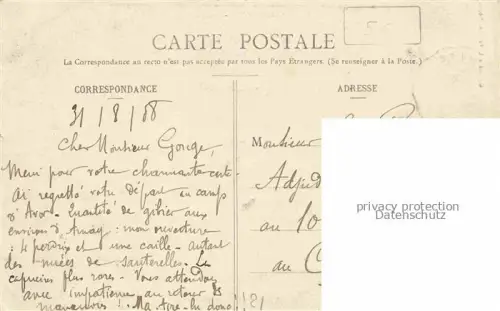 CARTE POSTALE
La Correspondance au recto n'est pas acceptée par tous les Pays Étrangers. (Se renseigner à la Poste.)
CORRESPONDANCE
ADRESSE
31/8/08
Cher Monsieur Gorge,
Merci pour votre charmante carte
Ai regretté votre départ au camp
d'Avor - Quantité de gibier aux
environs d' : mon ouverture
: 4 perdrix et une caille - autant
des nuées de sauterelles. Le
capucin plus rare - Vous attendons
avec impatience au retour des
manœuvres ! Ma tire-lu donc
Monsieur
Adjud
au 10
au C
privacy protection
Datenschutz